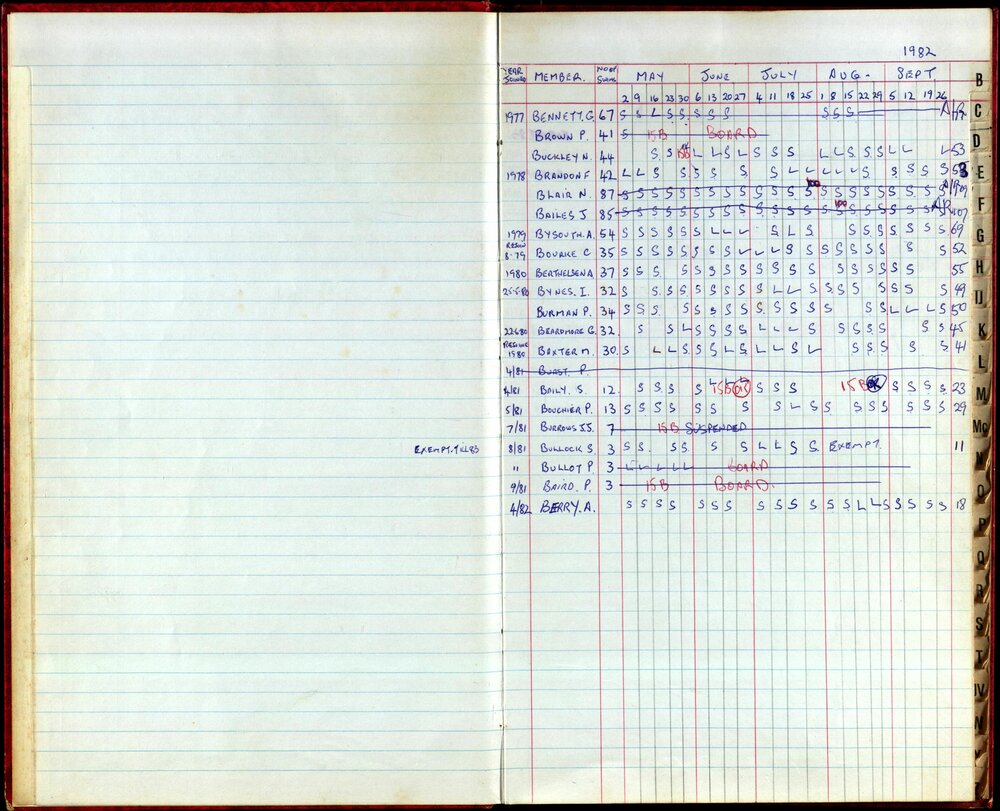 1982
YEAR JOINED MEMBER. NO OF SWIMS MAY JUNE JULY AUG. SEPT
2 9 16 23 30 6 13 20 27 4 11 18 25 1 8 15 22 29 5 12 19 26
1977 BENNETT.G 67 S S L S S S S S S S S A/R
BROWN P. 41 S 15B BOARD
BUCKLEY N. 44 S S 15B L L L S L S S S L L S S S L L L 53
1978 BRANDON F 42 L L S S S S S S L L L L L L S S S S S 53
BLAIR N. 87 S S S S S S S S S S S S S 100 S S S S S S S S S A/R 109
BAILES J 85 S S S S S S S S S S S S S S S 100 S S S S S S S A/R 107
1979 BYSOUTH.A. 54 S S S S S S L L L S L S S S S S S S S S 69
REJOIN 8-79 BOURKE C 35 S S S S S S S S L L L S S S S S S S S S 52
1980 BERTHELSEN A 37 S S S S S S S S S S S S S S S S S S 55
25-5-80 BYNES. I. 32 S S S S S S S S S S L L S S S S S S S S 49
BURMAN P. 34 S S S S S S S S S S S S S S S L L L S 50
22.6.80 BEARDMORE G. 32. S S L S S S S L L L S S S S S S S 45
REJOINED 1980 BAXTER M. 30. S L L S S S L S L L S L S S S S S 41
4/81 BURST P.
4/81 BAILY. S. 12. S S S S 15B S S S 15B OK S S S S 23
5/81 BOUCHIER P. 13 S S S S S S S S L S S S S S S S S 29
7/81 BURROWS I.S. 7 15B SUSPENDED
EXEMPT. TILL 83 8/81 BULLOCK S. 3 S S S S S S L L S S EXEMPT. 11
" BULLOT P. 3 L L L L L BOARD
9/81 BAIRD. P. 3 15B BOARD.
4/82 BERRY. A. S S S S S S S S S S S S S S L L S S S S S 18
B
C
D
E
F
G
H
K
L
M
Mc
N
O
P
Q
R
S
T